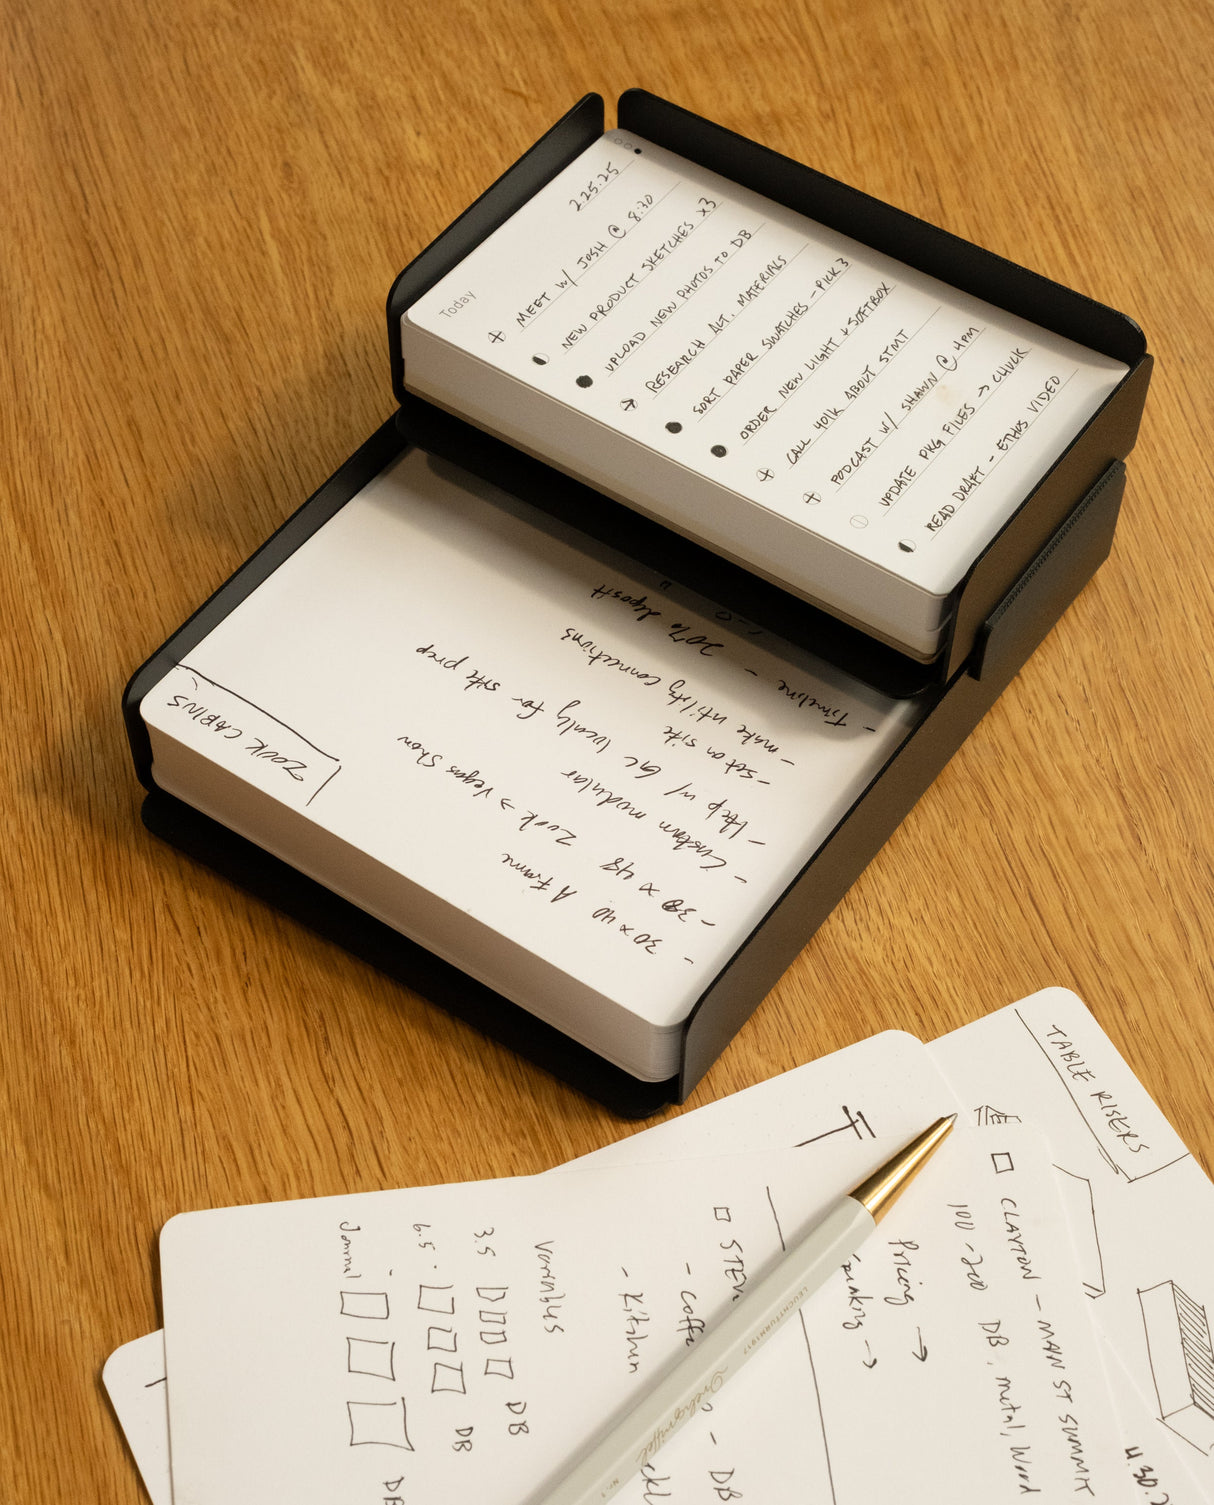 Today
2.25.25
MEET W/ JOSH @ 8:30
NEW PRODUCT SKETCHES x3
UPLOAD NEW PHOTOS TO DB
RESEARCH ALT. MATERIALS
SORT PAPER SWATCHES - PICK 3
ORDER NEW LIGHT + SOFTBOX
CALL 401K ABOUT STMT
PODCAST W/ SHAWN @ 4PM
UPDATE PKG FILES → CHUCK
READ DRAFT - ETHOS VIDEO
ZOOK CABINS
- 30 x 40 A Frame
- 38 x 48 Zook → Vegas Show
- Custom modular
- Help w/ GC locally for site prep
- Set on site
- make utility connections
- Timeline - 20% deposit
TABLE RISERS
CLAYTON - MAIN ST SUMMIT
100 - 200 DB, metal, Wood
Pricing →
- Coffe
- Kitchen
- DB
Variables
3.5 DB
6.5 DB
Journal DB
LEUCHTTURM1917
Drehgriffel
Nr. 1